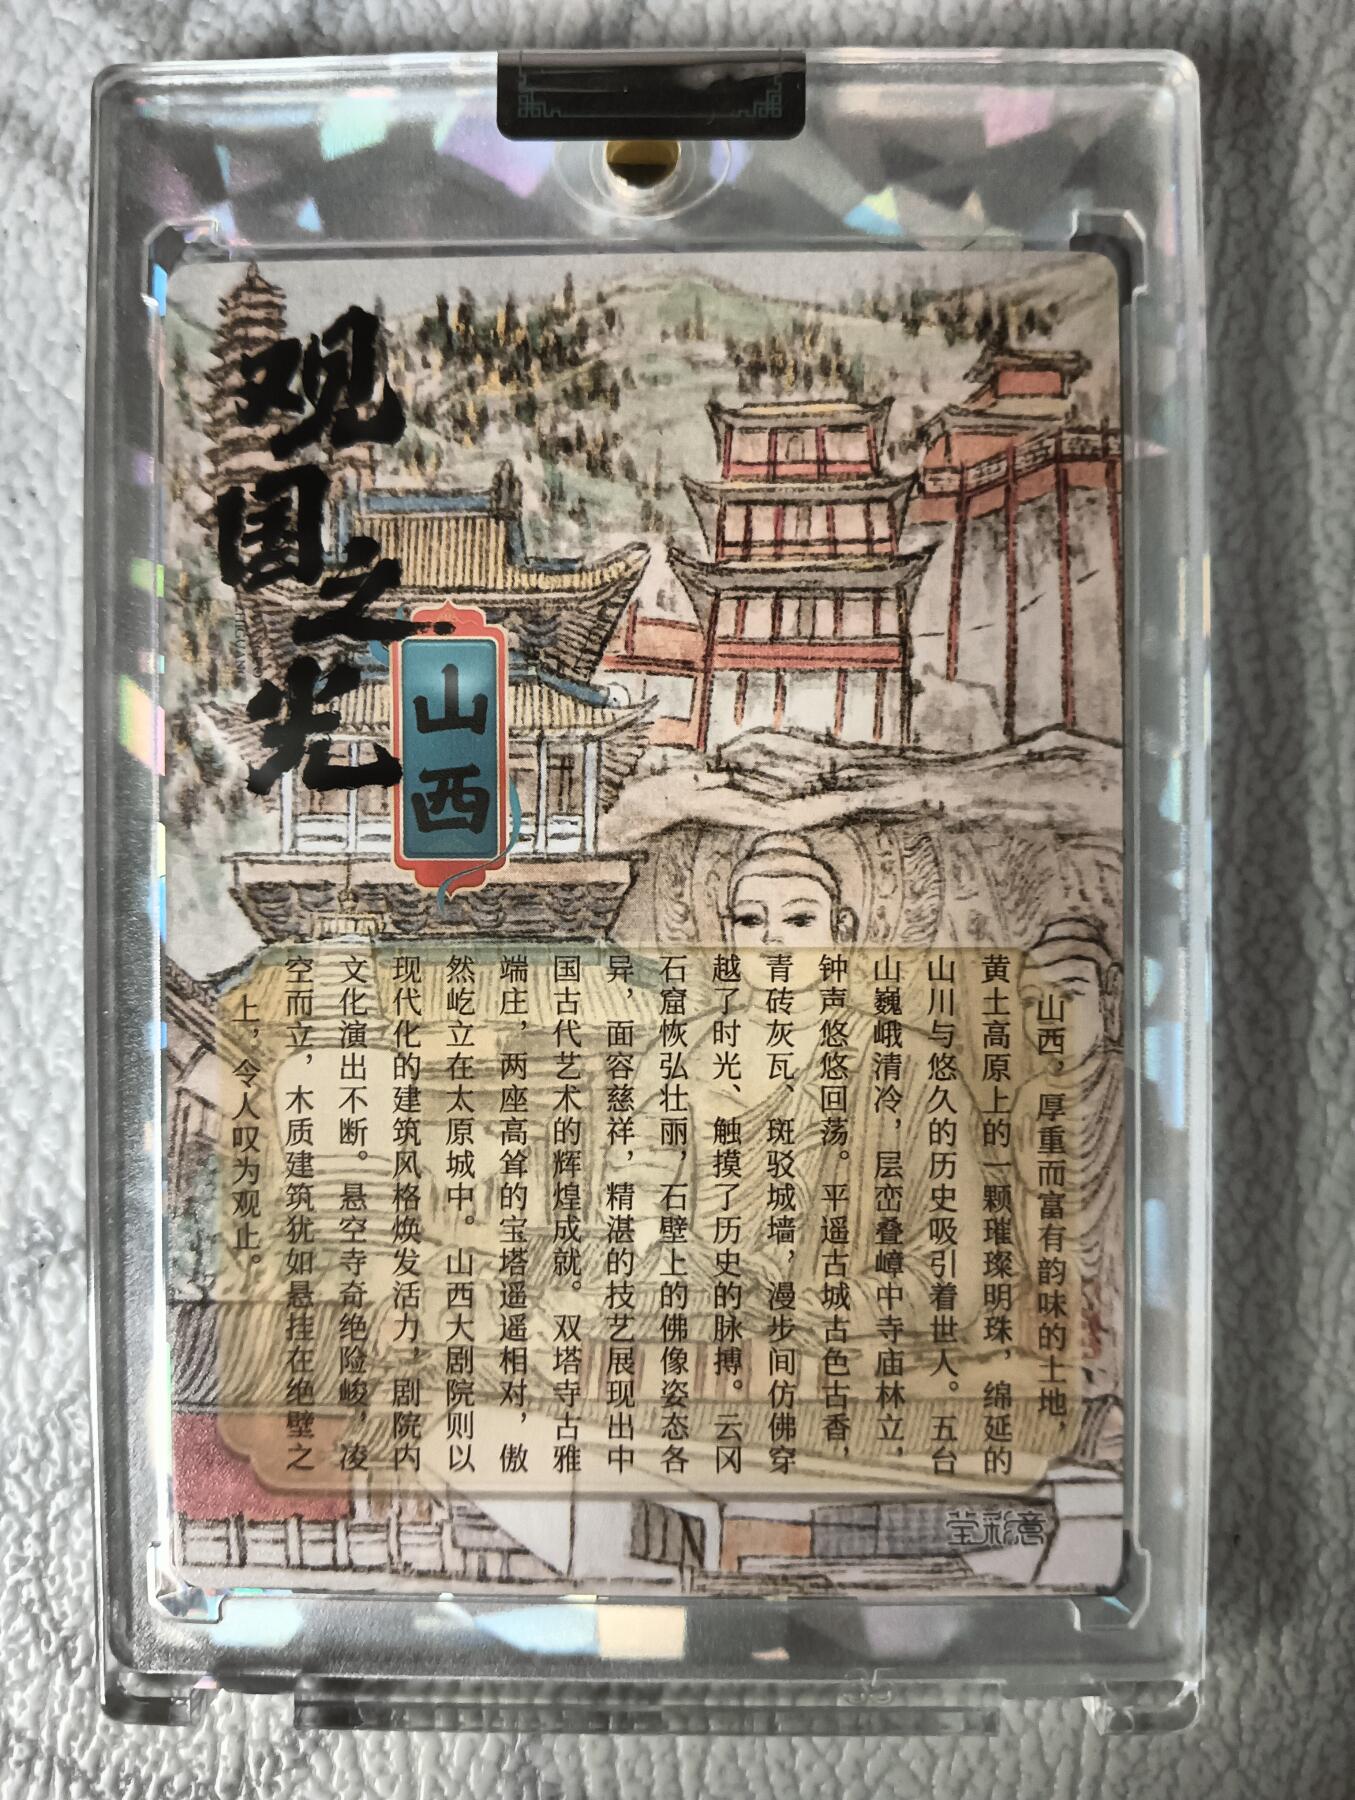 观国之光
山西
山西，厚重而富有韵味的土地，
黄土高原上的一颗璀璨明珠，绵延的
山川与悠久的历史吸引着世人。五台
山巍峨清冷，层峦叠嶂中寺庙林立，
钟声悠悠回荡。平遥古城古色古香，
青砖灰瓦、斑驳城墙，漫步间仿佛穿
越了时光、触摸了历史的脉搏。云冈
石窟恢弘壮丽，石壁上的佛像姿态各
异，面容慈祥，精湛的技艺展现出中
国古代艺术的辉煌成就。双塔寺古雅
端庄，两座高耸的宝塔遥遥相对，傲
然屹立在太原城中。山西大剧院则以
现代化的建筑风格焕发活力，剧院内
文化演出不断。悬空寺奇绝险峻，凌
空而立，木质建筑犹如悬挂在绝壁之
上，令人叹为观止。
莹彩意
35